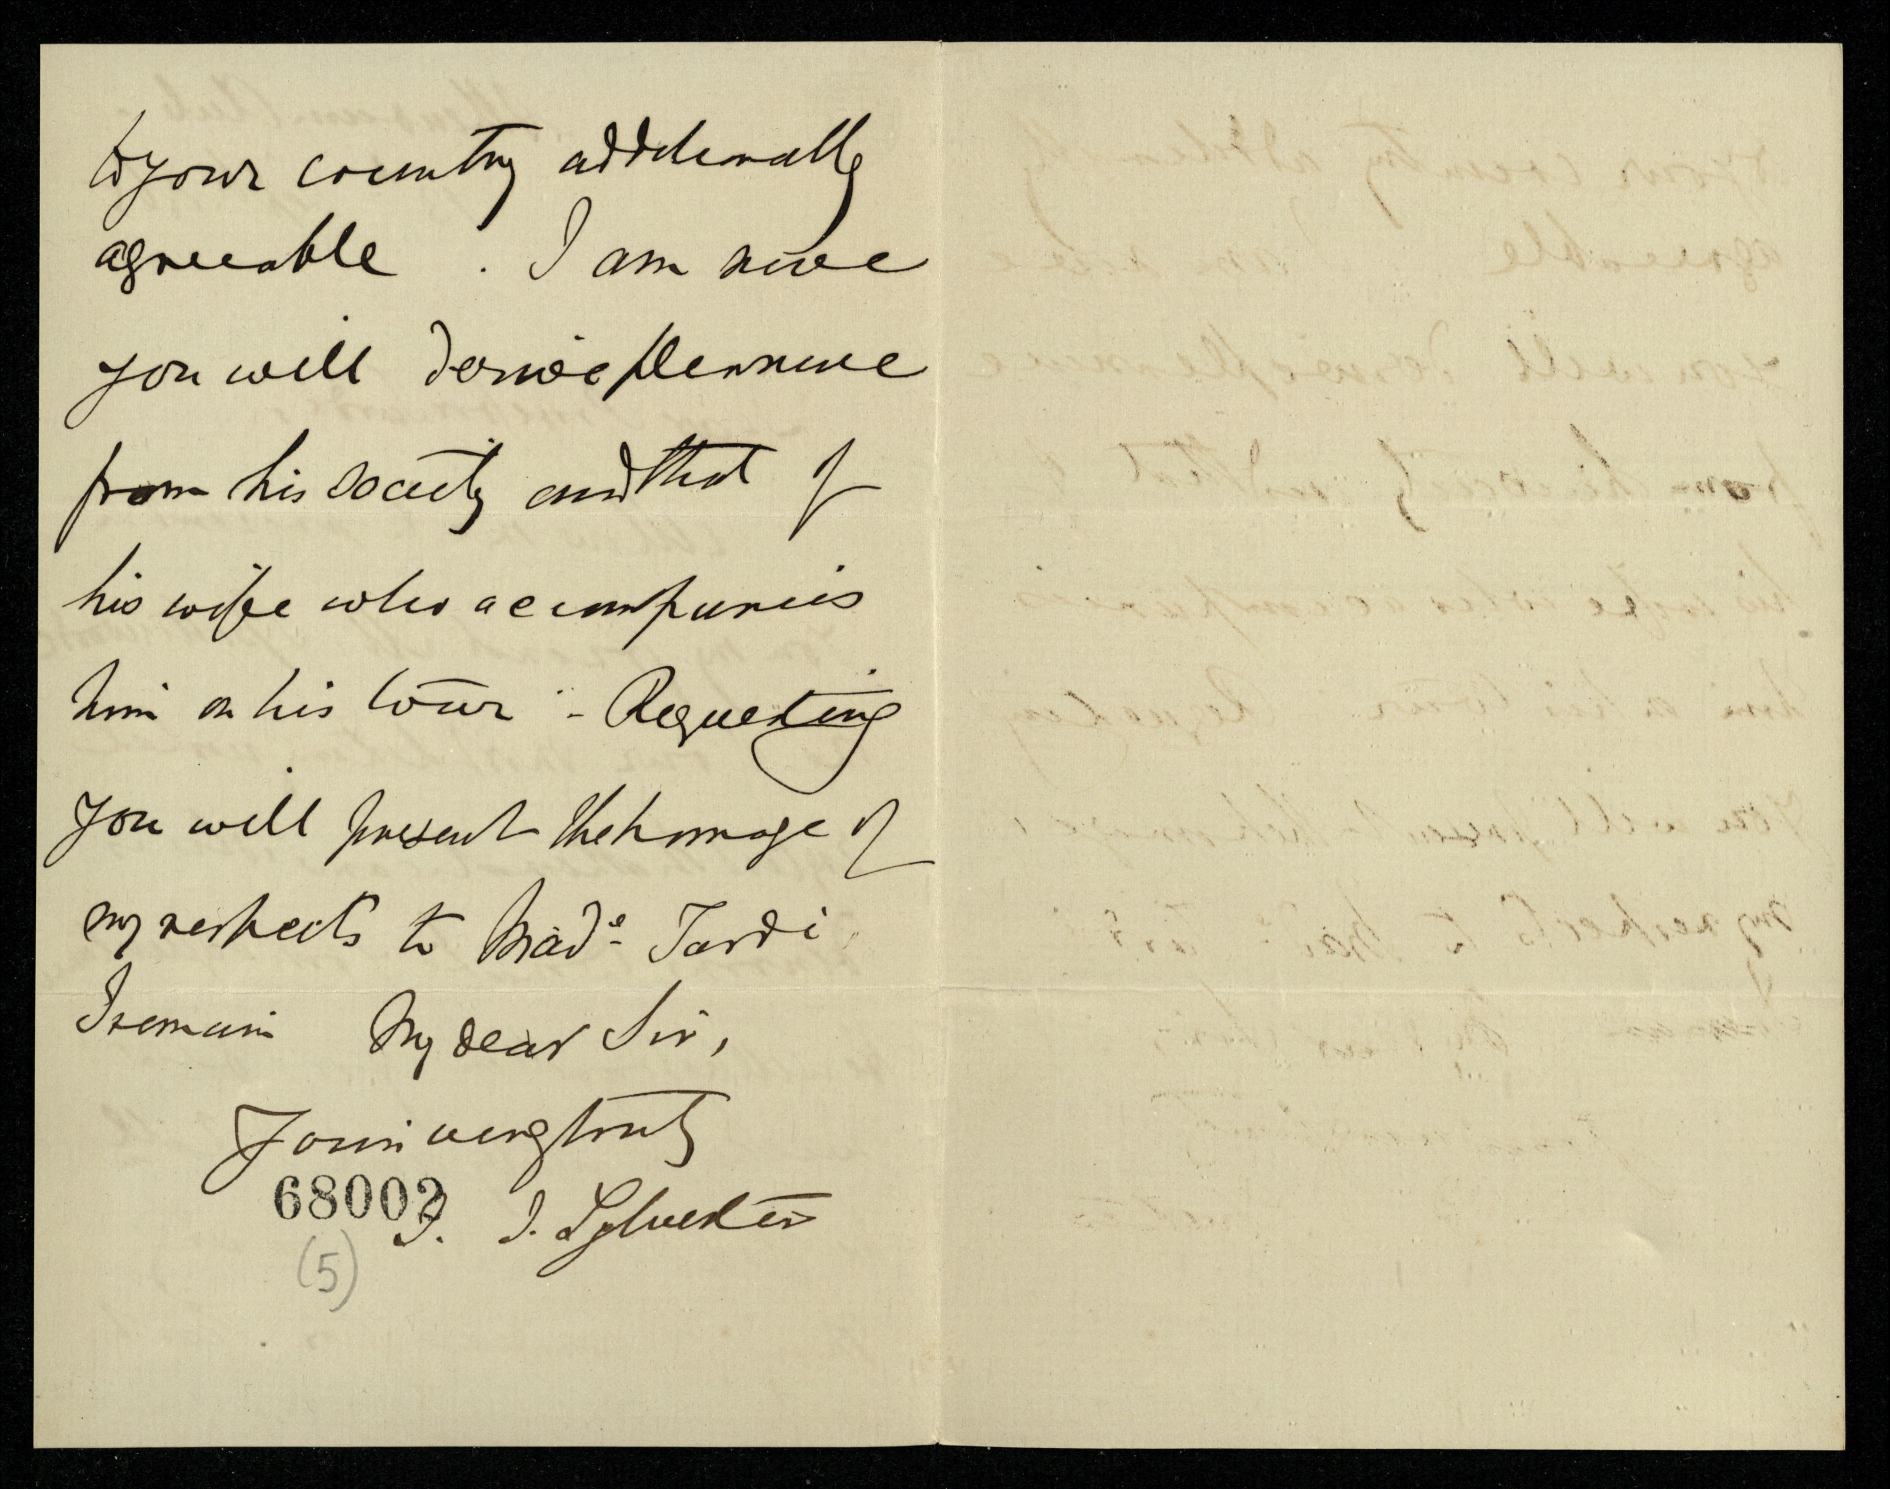 to your country additionally
agreeable . I am sure
you will derive pleasure
from his society and that of
his wife who accompanies
him on his tour - Requesting
you will present the homage of
my respects to Mad.e Tardi
I remain My dear Sir,
Yours very truly
68002
J. J. Sylvester
(5)